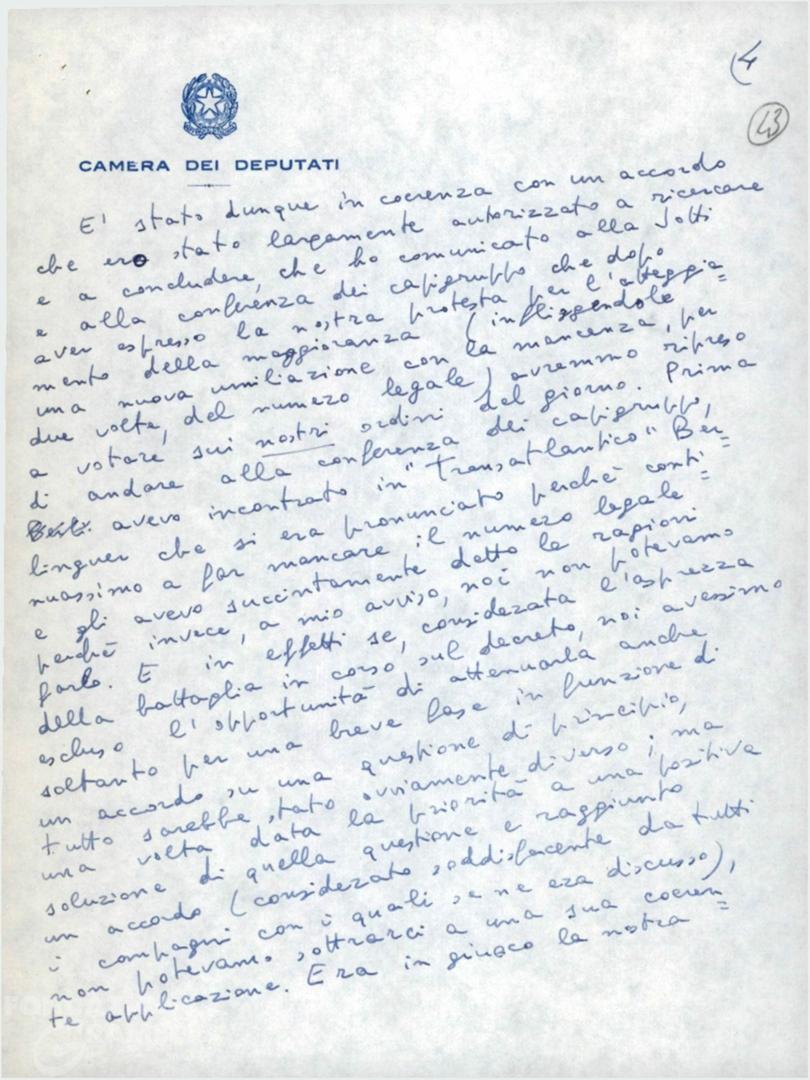 4
43
CAMERA DEI DEPUTATI
E' stato dunque in coerenza con un accordo
che ero stato largamente autorizzato a ricercare
e a concludere, che ho comunicato alla Jotti
e alla conferenza dei capigruppo che dopo
aver espresso la nostra protesta per l'atteggia=
mento della maggioranza (infliggendole
una nuova umiliazione con la mancanza, per
due volte, del numero legale) avremmo ripreso
a votare sui nostri ordini del giorno. Prima
di andare alla conferenza dei capigruppo,
avevo incontrato in "Transatlantico" Ber=
linguer che si era pronunciato perché conti=
nuassimo a far mancare il numero legale
e gli avevo succintamente detto le ragioni
perché invece, a mio avviso, noi non potevamo
farlo. E in effetti se, considerata l'asprezza
della battaglia in corso sul decreto, noi avessimo
escluso l'opportunità di attenuarla anche
soltanto per una breve fase in funzione di
un accordo su una questione di principio,
tutto sarebbe stato ovviamente diverso; ma
una volta data la priorità a una positiva
soluzione di quella questione e raggiunto
un accordo (considerato soddisfacente da tutti
i compagni con i quali se ne era discusso),
non potevamo sottrarci a una sua coeren=
te applicazione. Era in giuoco la nostra